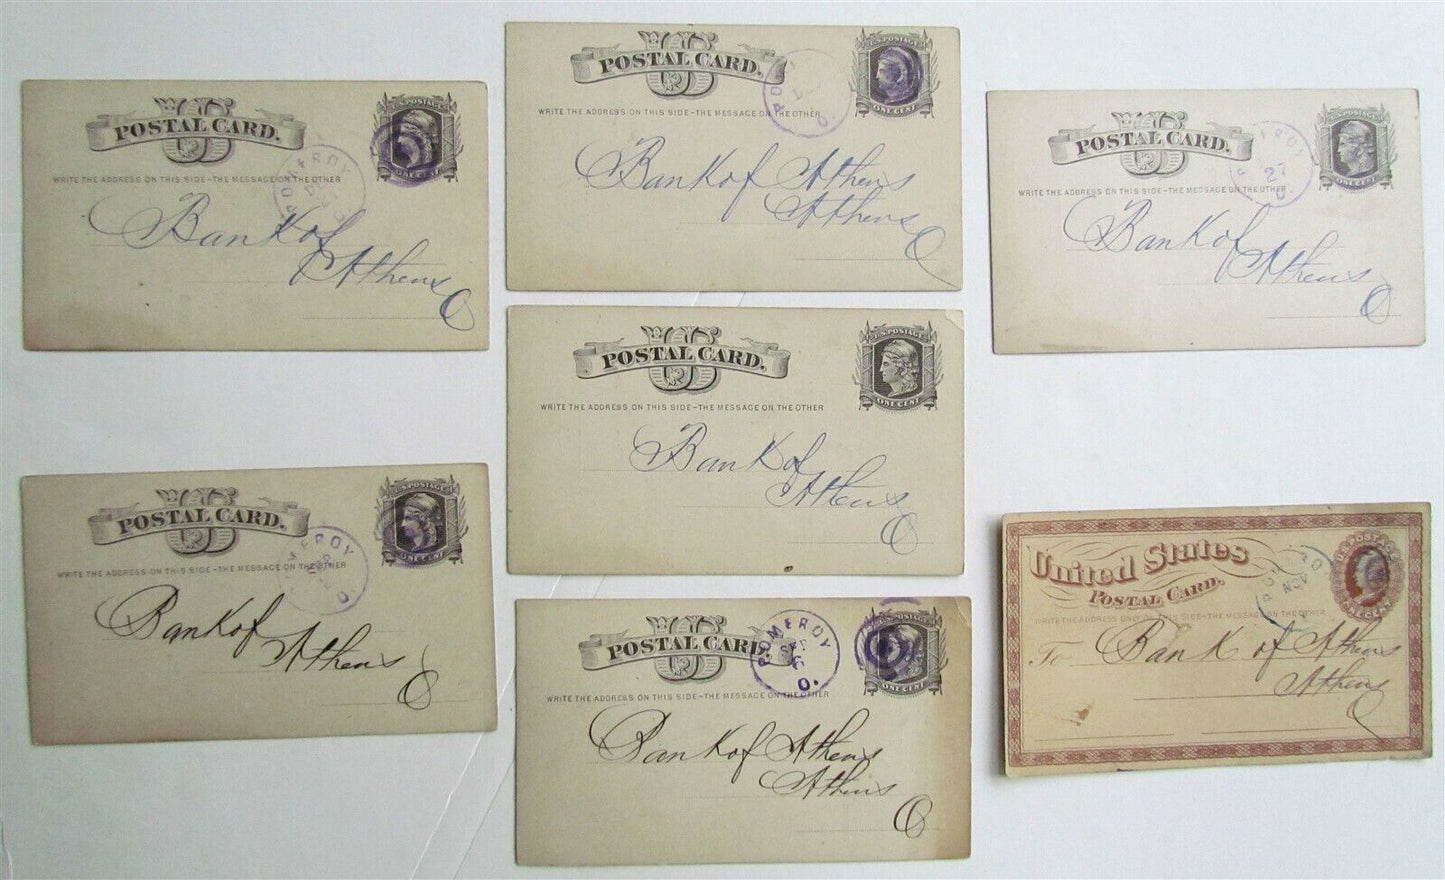 POSTAL CARD.
U.S. POSTAGE
ONE CENT
WRITE THE ADDRESS ON THIS SIDE - THE MESSAGE ON THE OTHER
POMEROY
O.
Bank of
Athens
O
POSTAL CARD.
U.S. POSTAGE
ONE CENT
WRITE THE ADDRESS ON THIS SIDE - THE MESSAGE ON THE OTHER
O.
Bank of Athens
Athens
O
POSTAL CARD.
ONE CENT
WRITE THE ADDRESS ON THIS SIDE - THE MESSAGE ON THE OTHER
27
O.
Bank of
Athens
O
POSTAL CARD.
U.S. POSTAGE
ONE CENT
WRITE THE ADDRESS ON THIS SIDE - THE MESSAGE ON THE OTHER
Bank of
Athens
O
POSTAL CARD.
U.S. POSTAGE
ONE CENT
WRITE THE ADDRESS ON THIS SIDE - THE MESSAGE ON THE OTHER
MEROY
O.
Bank of
Athens
O
POSTAL CARD.
ONE CENT
POMEROY
SEP
6
O.
WRITE THE ADDRESS ON THIS SIDE - THE MESSAGE ON THE OTHER
Bank of Athens
Athens
O
United States
POSTAL CARD.
U.S. POSTAGE
ONE CENT
WRITE THE ADDRESS ONLY ON THIS SIDE - THE MESSAGE ON THE OTHER
NOV
To Bank of Athens
Athens
O